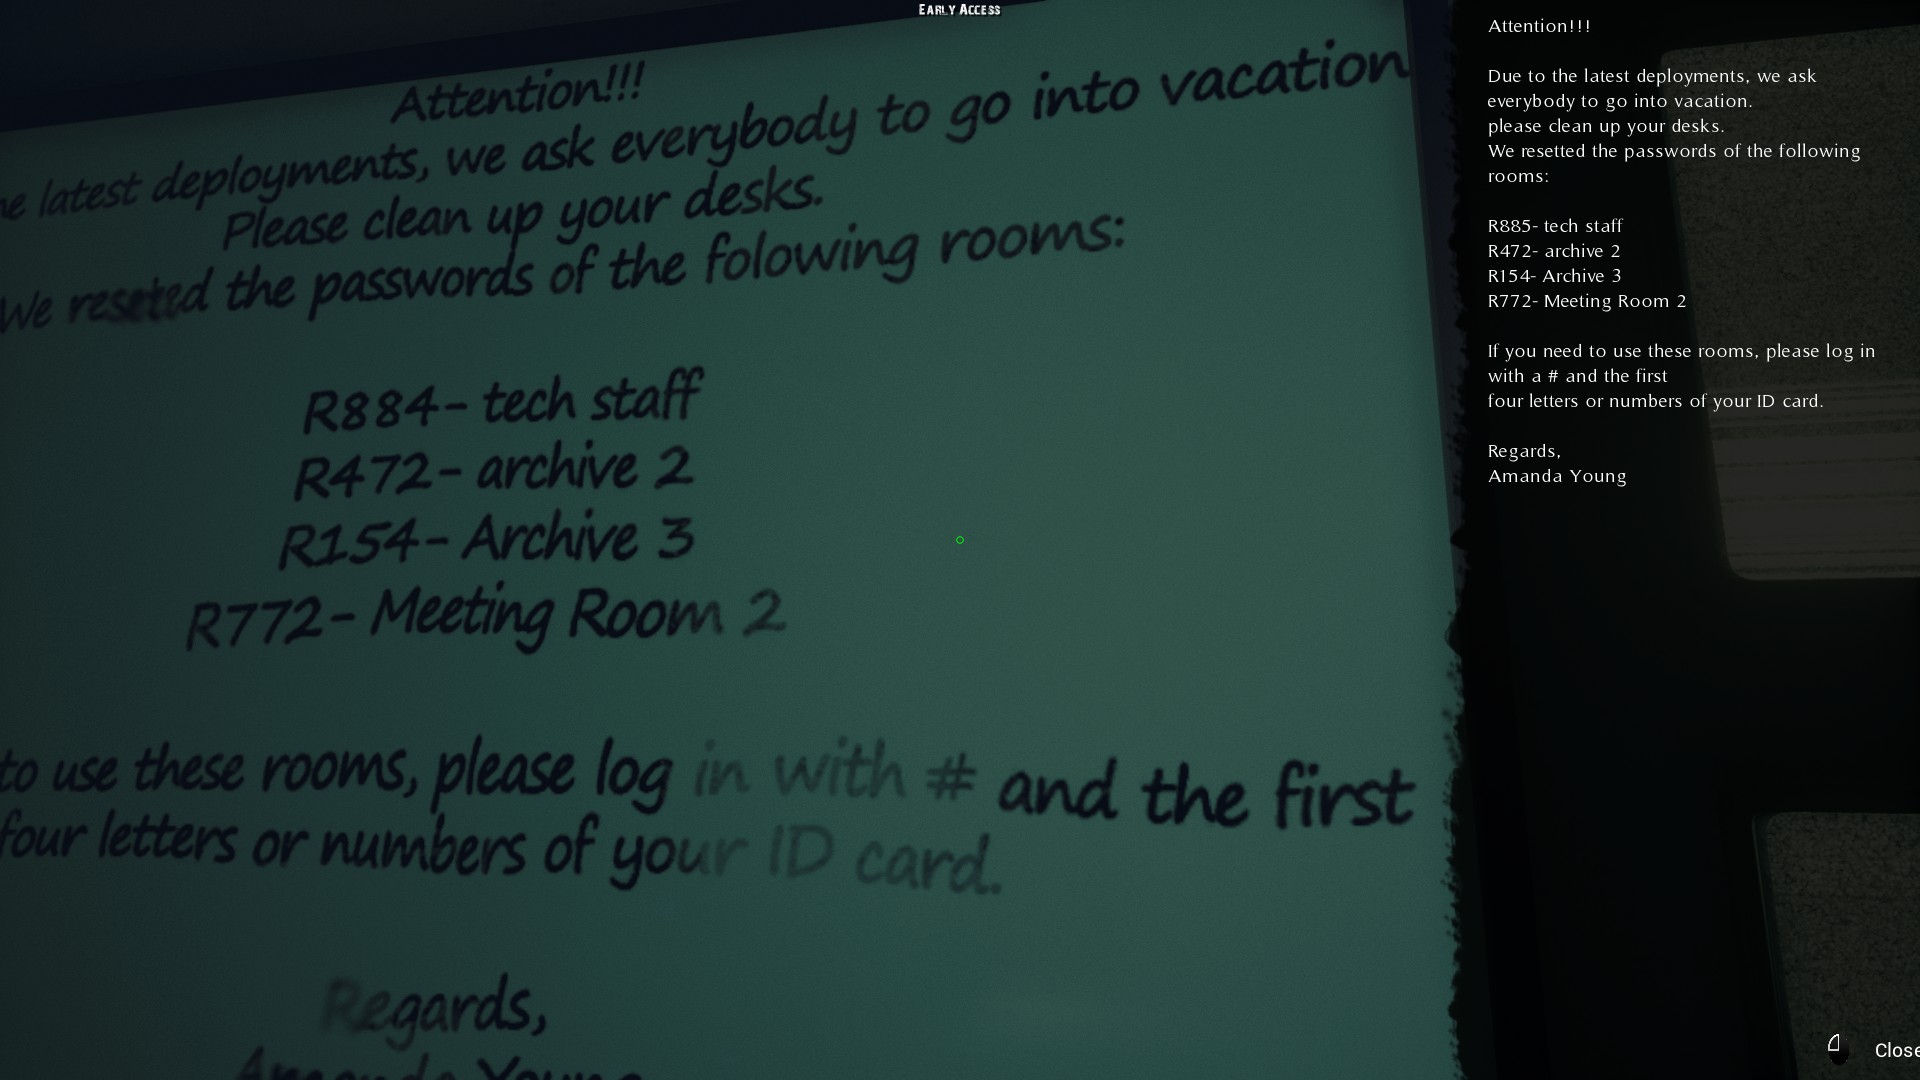 Early Access
Attention!!!
he latest deployments, we ask everybody to go into vacation
Please clean up your desks.
We reseted the passwords of the folowing rooms:
R884- tech staff
R472- archive 2
R154- Archive 3
R772- Meeting Room 2
to use these rooms, please log in with # and the first
four letters or numbers of your ID card.
Regards,
Amanda Young
Attention!!!
Due to the latest deployments, we ask
everybody to go into vacation.
please clean up your desks.
We resetted the passwords of the following
rooms:
R885- tech staff
R472- archive 2
R154- Archive 3
R772- Meeting Room 2
If you need to use these rooms, please log in
with a # and the first
four letters or numbers of your ID card.
Regards,
Amanda Young
Close